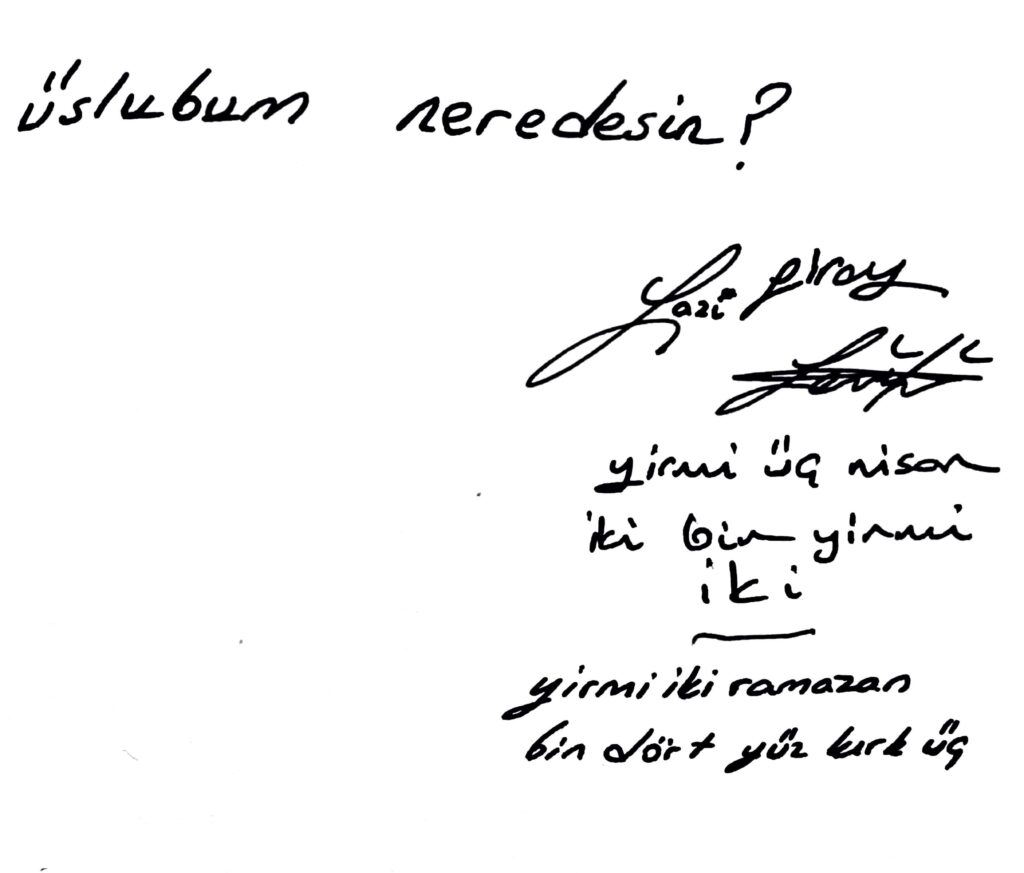 üslubum neredesin?
Gazi Giray
yirmi üç nisan
iki bin yirmi
iki
yirmi iki ramazan
bin dört yüz kırk üç